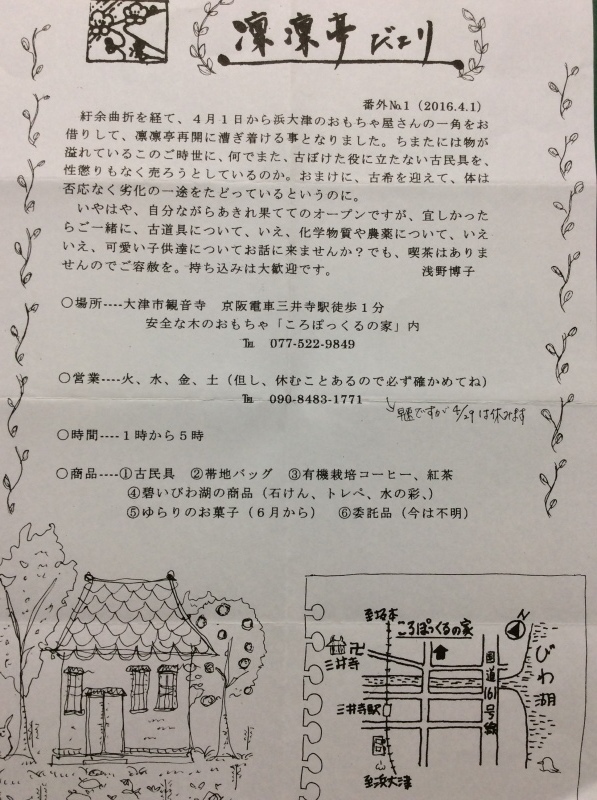 凛凛亭 びより
番外№1（2016.4.1）
紆余曲折を経て、４月１日から浜大津のおもちゃ屋さんの一角をお
借りして、凛凛亭再開に漕ぎ着ける事となりました。ちまたには物が
溢れているこのご時世に、何でまた、古ぼけた役に立たない古民具を、
性懲りもなく売ろうとしているのか。おまけに、古希を迎えて、体は
否応なく劣化の一途をたどっているというのに。
いやはや、自分ながらあきれ果ててのオープンですが、宜しかった
らご一緒に、古道具について、いえ、化学物質や農薬について、いえ
いえ、可愛い子供達についてお話に来ませんか？でも、喫茶はありま
せんのでご容赦を。持ち込みは大歓迎です。 浅野博子
○場所----大津市観音寺 京阪電車三井寺駅徒歩１分
安全な木のおもちゃ「ころぽっくるの家」内
℡ 077-522-9849
○営業----火、水、金、土（但し、休むことあるので必ず確かめてね）
℡ 090-8483-1771
早速ですが 4/29 は休みます
○時間----１時から５時
○商品----①古民具 ②帯地バッグ ③有機栽培コーヒー、紅茶
④碧いびわ湖の商品（石けん、トレペ、水の彩、）
⑤ゆらりのお菓子（６月から） ⑥委託品（今は不明）
至坂本
ころぽっくるの家
N
卍
三井寺
国道161号線
びわ湖
三井寺駅
至浜大津